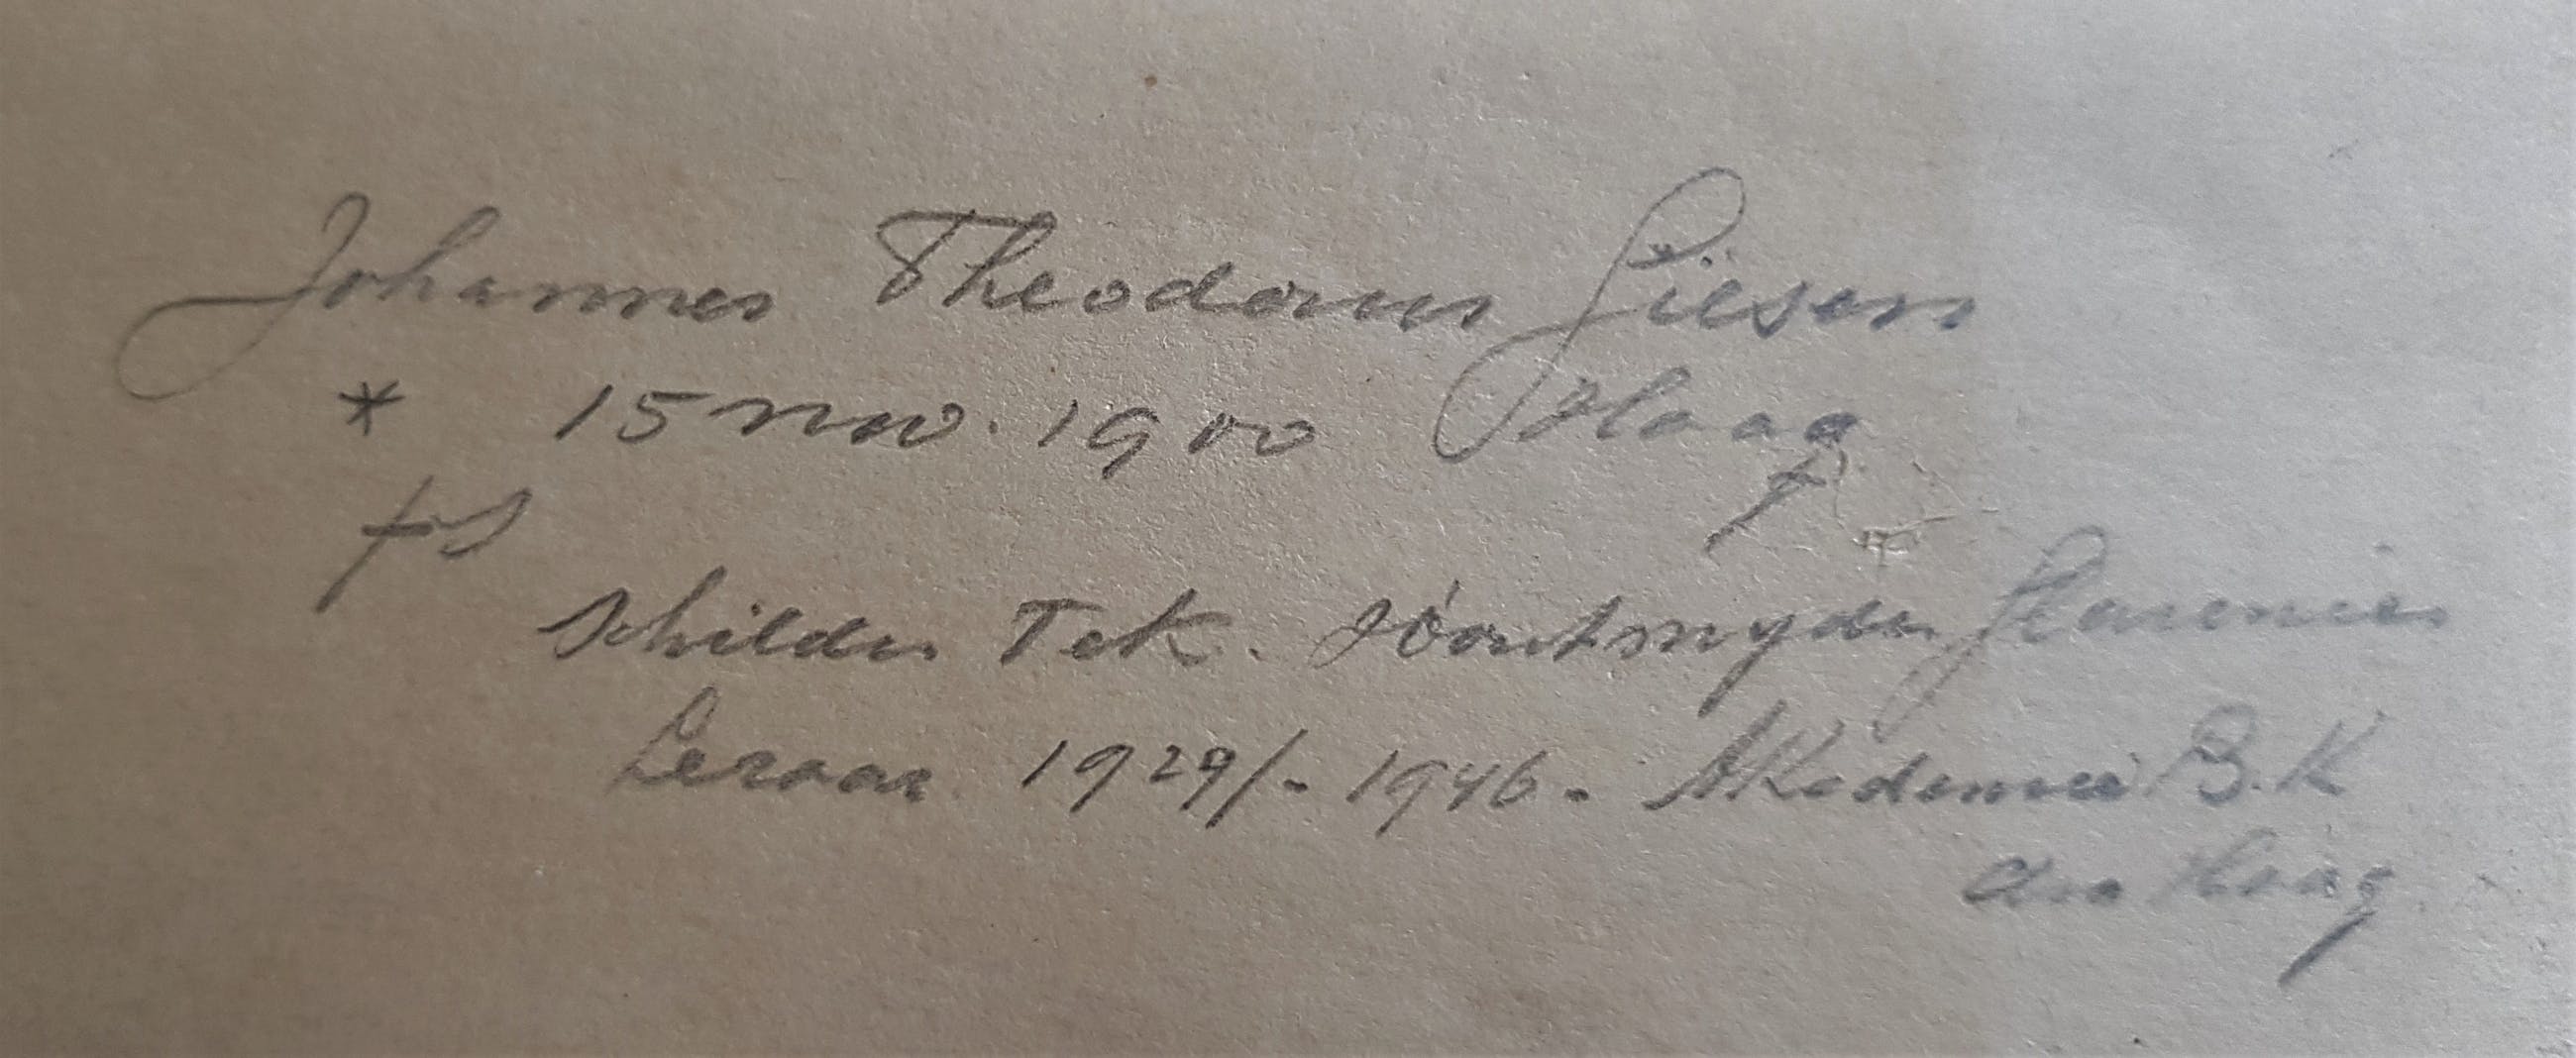 Johannes Theodorus Giesen
* 15 nov. 1900 Haag
†
Schilder Tek. Houtsnyder
Leraar 1929/- 1946. Akademie B.K
den Haag